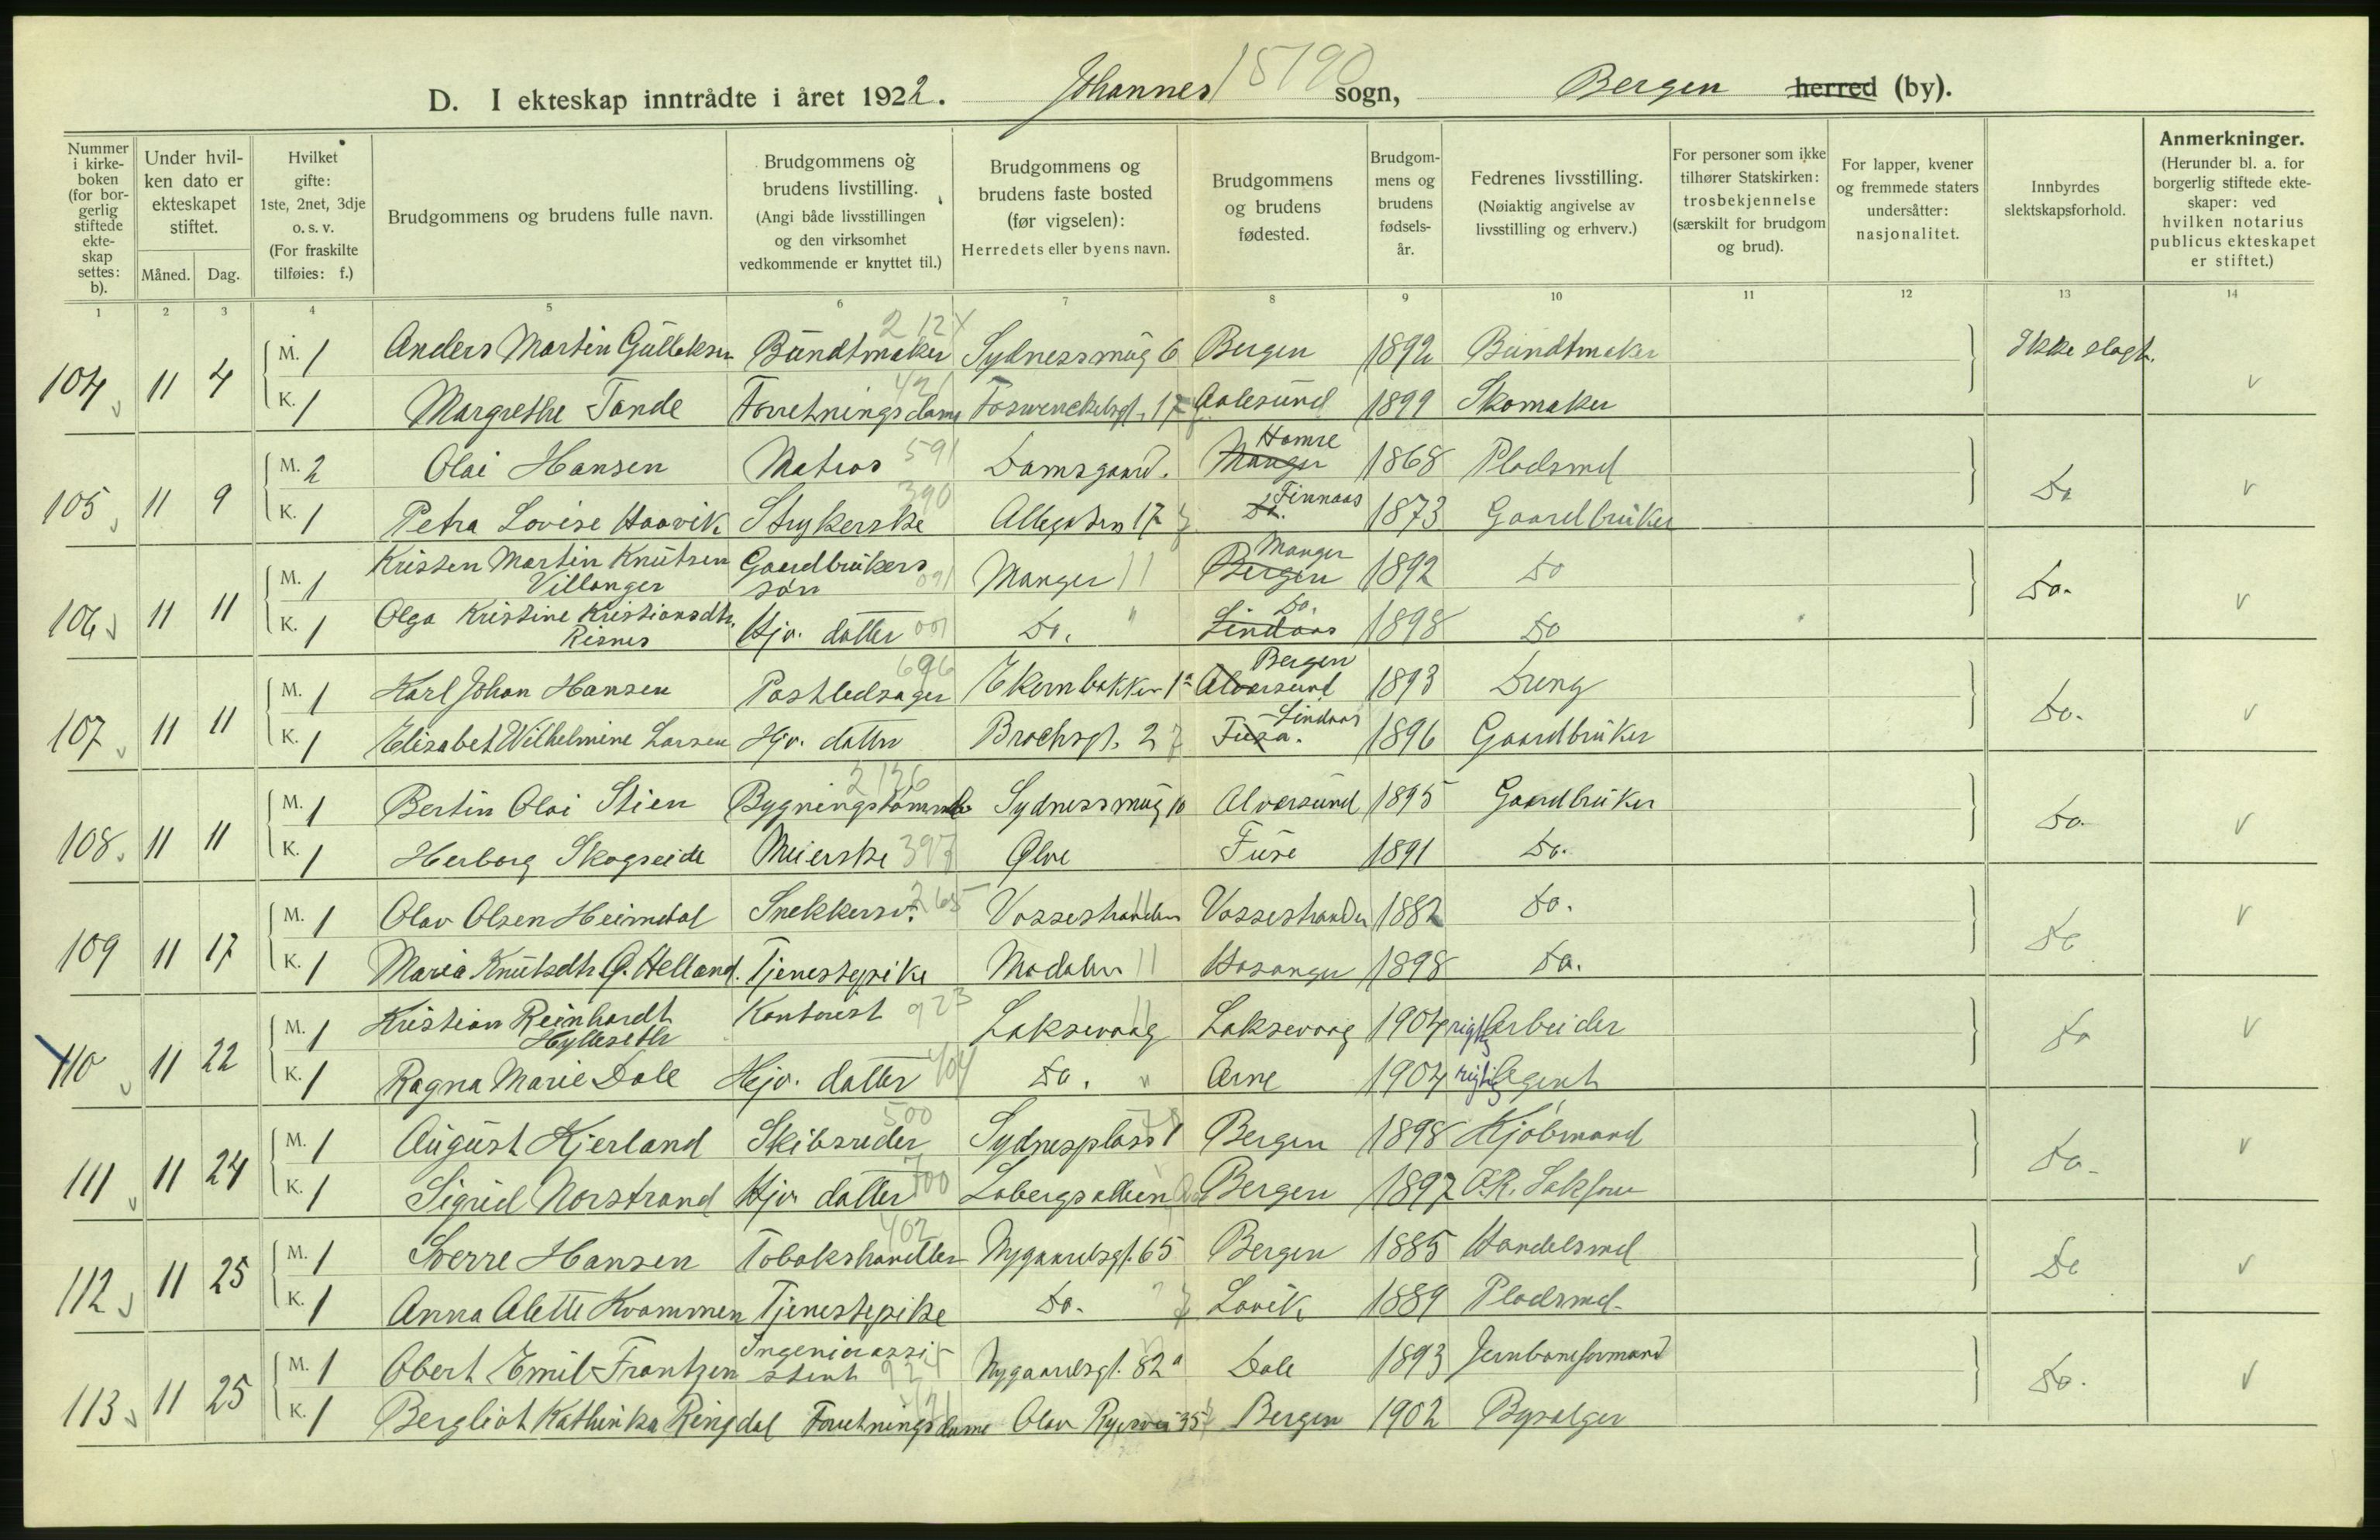 D. I ekteskap inntrådte i året 1922. Johannes sogn, Bergen herred (by).
15190
Nummer i kirke-boken (for bor-gerlig stiftede ekte-skap settes: b).
Under hvil-ken dato er ekteskapet stiftet.
Måned. Dag.
Hvilket gifte: 1ste, 2net, 3dje o. s. v. (For fraskilte tilføies: f.)
Brudgommens og brudens fulle navn.
Brudgommens og brudens livstilling. (Angi både livsstillingen og den virksomhet vedkommende er knyttet til.)
Brudgommens og brudens faste bosted (før vigselen): Herredets eller byens navn.
Brudgommens og brudens fødested.
Brudgom-mens og brudens fødsels-år.
Fedrenes livsstilling. (Nøiaktig angivelse av livsstilling og erhverv.)
For personer som ikke tilhører Statskirken: trosbekjennelse (særskilt for brudgom og brud).
For lapper, kvener og fremmede staters undersåtter: nasjonalitet.
Innbyrdes slektskapsforhold.
Anmerkninger. (Herunder bl. a. for borgerlig stiftede ekte-skaper: ved hvilken notarius publicus ekteskapet er stiftet.)
1 2 3 4 5 6 7 8 9 10 11 12 13 14
104 11 4 M. 1 Anders Martin Gulleksen Bundtmaker Sydnessmug 6 Bergen 1892 Bundtmaker Ikke slegt.
K. 1 Margrethe Tande Forretningsdame Foswinckelsgt. 17 Aalesund 1899 Skomaker
105 11 9 M. 2 Olai Hansen Matros 591 Damsgaard. Manger Hamre 1868 Pladsmd Do
K. 1 Petra Lovise Haavik Strykerske 390 Allegaten 17 Do. Finnaas 1873 Gaardbruker
106 11 11 M. 1 Kristen Martin Knutsen Villanger Gaardbrukers søn Manger Bergen Manger 1892 Do Do.
K. 1 Olga Kristine Kristiansdtr. Risnes Hjv. datter 001 Do. " Lindaas Do. 1898 Do
107 11 11 M. 1 Karl Johan Hansen Postledsager 696 Ekernbakken 1a Alversund Bergen 1893 Dreng Do.
K. 1 Elisabet Wilhelmine Larsen Hjv. datter Brochsgt. 2 Fusa. Lindaas 1896 Gaardbruker
108 11 11 M. 1 Bertin Olai Stien Sydnessmug 10 Alversund 1895 Gaardbruker Do.
K. 1 Herborg Skogseide Meierske 397 Ølve Fuse 1891 Do.
109 11 17 M. 1 Olav Olsen Heimdal Snekkersv. 265 Vossestranden Vossestranden 1882 Do. Do
K. 1 Maria Knutsdtr. Ø. Helland. Tjenestepike Modalen Hosanger 1898 Do.
110 11 22 M. 1 Kristian Reinhardt Hylleseth Kontorist 923 Laksevaag Laksevaag 1904 rigtig Arbeider Do
K. 1 Ragna Marie Dale Hjv. datter Do. " Arne 1904 rigtig Agent
111 11 24 M. 1 August Kjerland Skibsreder 500 Sydnesplass 1 Bergen 1898 Kjøbmand Do.
K. 1 Sigrid Norstrand Hjv. datter Løbergsalleen Bergen 1897 O.R. Sakfører
112 11 25 M. 1 Sverre Hansen Tobakshandler 402 Nygaardsgt. 65 Bergen 1885 Handelsmd Do
K. 1 Anna Alette Kvammen Tjenestepike Do. Lavik 1889 Pladsmd.
113 11 25 M. 1 Obert Emil Frantzen Ingeniørassistent Nygaardsgt. 82a Dale 1893 Jernbaneformand Do.
K. 1 Bergliot Kathinka Ringdal Forretningsdame Olav Ryesvei 35 Bergen 1902 Byselger